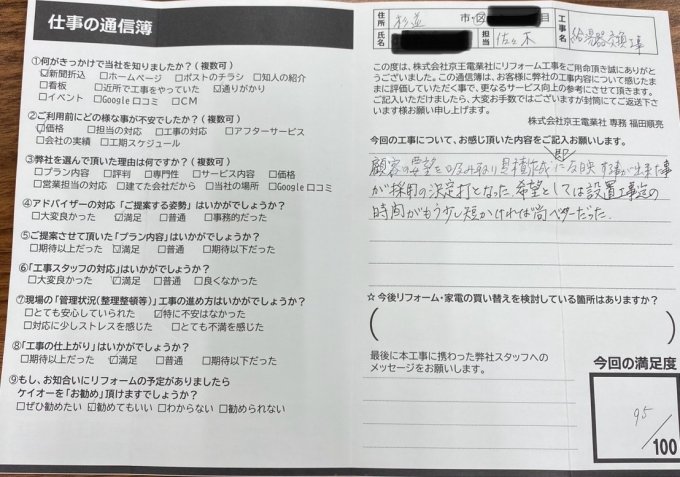 仕事の通信簿
①何がきっかけで当社を知りましたか?(複数可)
☑新聞折込 □ホームページ □ポストのチラシ □知人の紹介
□看板 □近所で工事をやっていた ☑通りがかり
□イベント □Google口コミ □CM
②ご利用前にどの様な事が不安でしたか?(複数可)
☑価格 □担当の対応 □工事の対応 □アフターサービス
□会社の実績 □工期スケジュール
③弊社を選んで頂いた理由は何ですか?(複数可)
□プラン内容 □評判 □専門性 □サービス内容 □価格
□営業担当の対応 □建てた会社だから □当社の場所 □Google口コミ
④アドバイザーの対応「ご提案する姿勢」はいかがでしょうか?
□大変良かった ☑満足 □普通 □事務的だった
⑤ご提案させて頂いた「プラン内容」はいかがでしょうか?
□期待以上だった ☑満足 □普通 □期待以下だった
⑥「工事スタッフの対応」はいかがでしょうか?
□大変良かった ☑満足 □普通 □良くなかった
⑦現場の「管理状況(整理整頓等)」工事の進め方はいかがでしょうか?
□とても安心していられた ☑特に不安はなかった
□対応に少しストレスを感じた □とても不満を感じた
⑧「工事の仕上がり」はいかがでしょうか?
□期待以上だった ☑満足 □普通 □期待以下だった
⑨もし、お知合いにリフォームの予定がありましたら
ケイオーを「お勧め」頂けますでしょうか?
□ぜひ勧めたい ☑勧めてもいい □わからない □勧められない
住所 杉並 市・区 目
氏名 担当 佐々木
工事名 給湯器交換工事
この度は、株式会社京王電業社にリフォーム工事をご用命頂き誠にありがとうございました。この通信簿は、お客様に弊社の工事内容に感じたままに評価していただく事で、更なるサービス向上の参考にさせて頂きます。
ご記入いただけましたら、大変お手数ではございますが封筒にてご返送下さいます様お願い申し上げます。
株式会社京王電業社 専務 福田順亮
今回の工事について、お感じ頂いた内容をご記入お願いします。
顧客の要望を 見積作成に即反映する事が出来た事
が採用の決定打となった。希望としては設置工事迄の
時間がもう少し短かければ尚ベターだった。
☆今後リフォーム・家電の買い替えを検討している箇所はありますか?
( )
最後に本工事に携わった弊社スタッフへの
メッセージをお願いします。
今回の満足度
95
/100